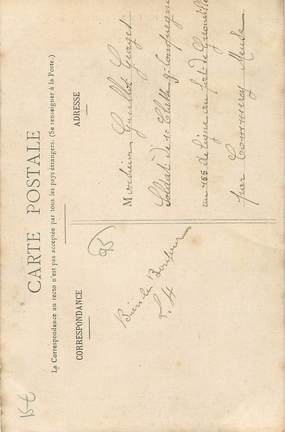 CARTE POSTALE
La Correspondance au recto n'est pas acceptée par tous les pays étrangers. (Se renseigner à la Poste.)
CORRESPONDANCE
ADRESSE
95
Bien le Bonjour
Monsieur Georges
Soldat de 1e Classe
au 155 de ligne au fort de
par Commercy Meuse
15€